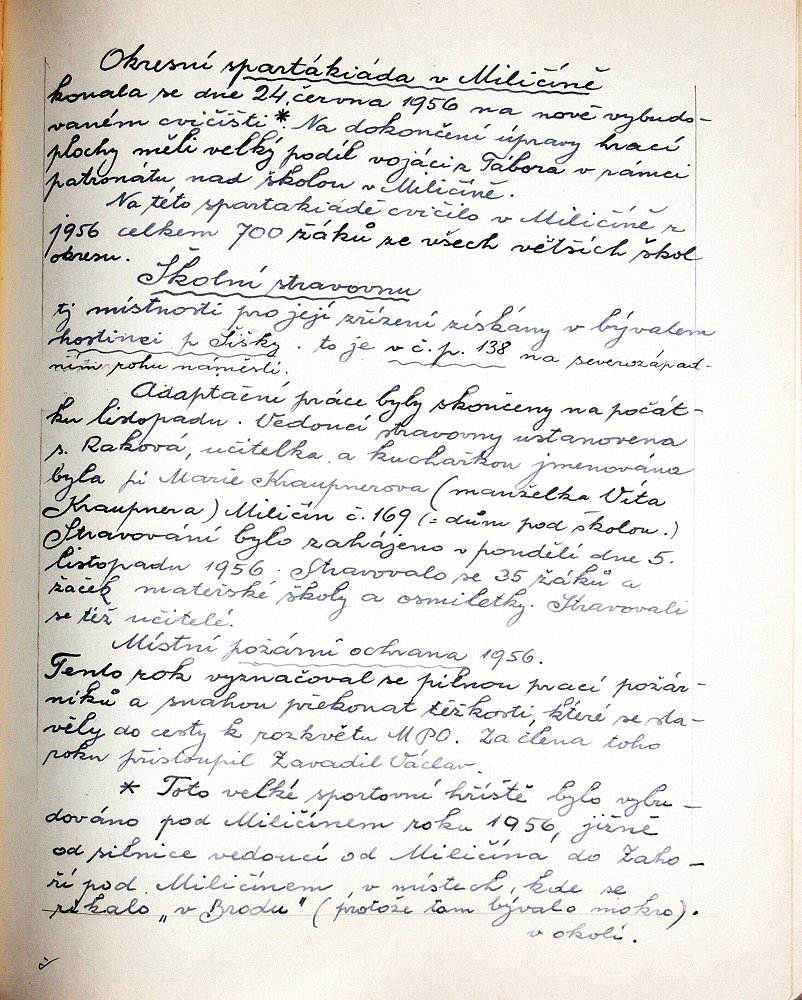 Okresní spartákiáda v Miličíně
konala se dne 24. června 1956 na nově vybudo-
vaném cvičišti*. Na dokončení úpravy hrací
plochy měli velký podíl vojáci z Tábora v rámci
patronátu nad školou v Miličíně.
Na této spartakiádě cvičilo v Miličíně r
1956 celkem 700 žáků ze všech větších škol
okresu.
Školní stravovnu
tj místnosti pro její zřízení získány v bývalém
hostinci p Šišky. to je v č. p. 138 na severozápad-
ním rohu náměstí.
Adaptační práce byly skončeny na počát-
ku listopadu. Vedoucí stravovny ustanovena
s. Raková, učitelka a kuchařkou jmenována
byla pí Marie Kraupnerova (manželka Víta
Kraupnera) Miličín č. 169 (= dům pod školou.)
Stravování bylo zahájeno v pondělí dne 5.
listopadu 1956. Stravovalo se 35 žáků a
žaček mateřské školy a osmiletky. Stravovali
se též učitelé.
Místní požární ochrana 1956.
Tento rok vyznačoval se pilnou prací požár-
níků a snahou překonat těžkosti, které se sta-
věly do cesty k rozkvětu MPO. Za člena toho
roku přistoupil Zavadil Václav.
* Toto velké sportovní hřiště bylo vybu-
dováno pod Miličínem roku 1956, jižně
od silnice vedoucí od Miličína do Zaho-
ří pod Miličínem, v místech, kde se
říkalo „v Brodu" (protože tam bývalo mokro).
v okolí.